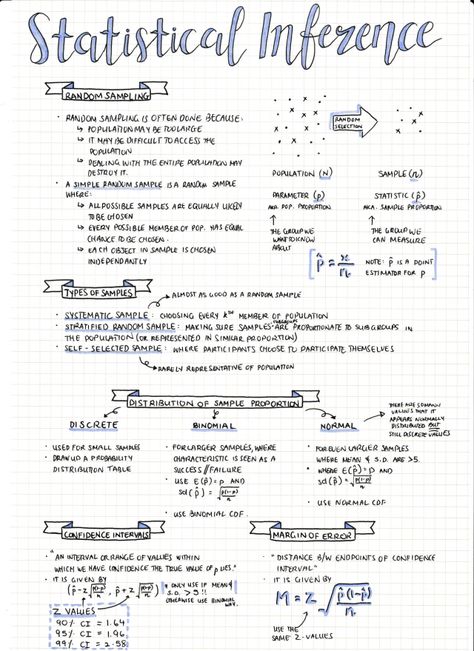 Statistical Inference
RANDOM SAMPLING
• RANDOM SAMPLING IS OFTEN DONE BECAUSE:
↳ POPULATION MAY BE TOO LARGE
↳ IT MAY BE DIFFICULT TO ACCESS THE
POPULATION
↳ DEALING WITH THE ENTIRE POPULATION MAY
DESTROY IT.
• A SIMPLE RANDOM SAMPLE IS A RANDOM SAMPLE
WHERE:
↳ ALL POSSIBLE SAMPLES ARE EQUALLY LIKELY
TO BE CHOSEN
↳ EVERY POSSIBLE MEMBER OF POP. HAS EQUAL
CHANCE TO BE CHOSEN.
↳ EACH OBJECT IN SAMPLE IS CHOSEN
INDEPENDANTLY
RANDOM
SELECTION
POPULATION (N)
SAMPLE (n)
PARAMETER (p)
AKA. POP. PROPORTION
STATISTIC (p̂)
AKA. SAMPLE PROPORTION
THE GROUP WE
WANT TO KNOW
ABOUT
THE GROUP WE
CAN MEASURE
NOTE: p̂ IS A POINT
ESTIMATOR FOR p
TYPES OF SAMPLES
ALMOST AS GOOD AS A RANDOM SAMPLE
• SYSTEMATIC SAMPLE: CHOOSING EVERY kth MEMBER OF POPULATION
• STRATIFIED RANDOM SAMPLE: MAKING SURE SAMPLES ARE PROPORTIONATE TO SUBGROUPS IN
THE POPULATION (OR REPRESENTED IN SIMILAR PROPORTION)
• SELF-SELECTED SAMPLE: WHERE PARTICIPANTS CHOOSE TO PARTICIPATE THEMSELVES
RARELY REPRESENTATIVE OF POPULATION
DISTRIBUTION OF SAMPLE PROPORTION
DISCRETE
• USED FOR SMALL SAMPLES
• DRAW UP A PROBABILITY
DISTRIBUTION TABLE
BINOMIAL
• FOR LARGER SAMPLES, WHERE
CHARACTERISTIC IS SEEN AS A
SUCCESS//FAILURE
• USE E(p̂)=p AND
sd(p̂) = √(p(1-p)/n)
• USE BINOMIAL CDF.
NORMAL
THERE ARE SO MANY
VALUES THAT IT
APPEARS NORMALLY
DISTRIBUTED BUT
STILL DISCRETE VALUES
• FOR EVEN LARGER SAMPLES
WHERE MEAN & S.D. ARE >5.
• WHERE E(p̂)=p AND
sd(p̂) = √(p(1-p)/n)
• USE NORMAL CDF
CONFIDENCE INTERVALS
• "AN INTERVAL OR RANGE OF VALUES WITHIN
WHICH WE HAVE CONFIDENCE THE TRUE VALUE OF p LIES."
• IT IS GIVEN BY
(p̂-z√(p̂(1-p̂)/n), p̂+z√(p̂(1-p̂)/n))
* ONLY USE IF MEAN &
S.D. >5!!
OTHERWISE USE BINOMIAL
WAY.
Z VALUES
90% CI = 1.64
95% CI = 1.96
99% CI = 2.58
MARGIN OF ERROR
• "DISTANCE B/W ENDPOINTS OF CONFIDENCE
INTERVAL"
• IT IS GIVEN BY
M = Z√(p̂(1-p̂)/n)
USE THE
SAME Z-VALUES